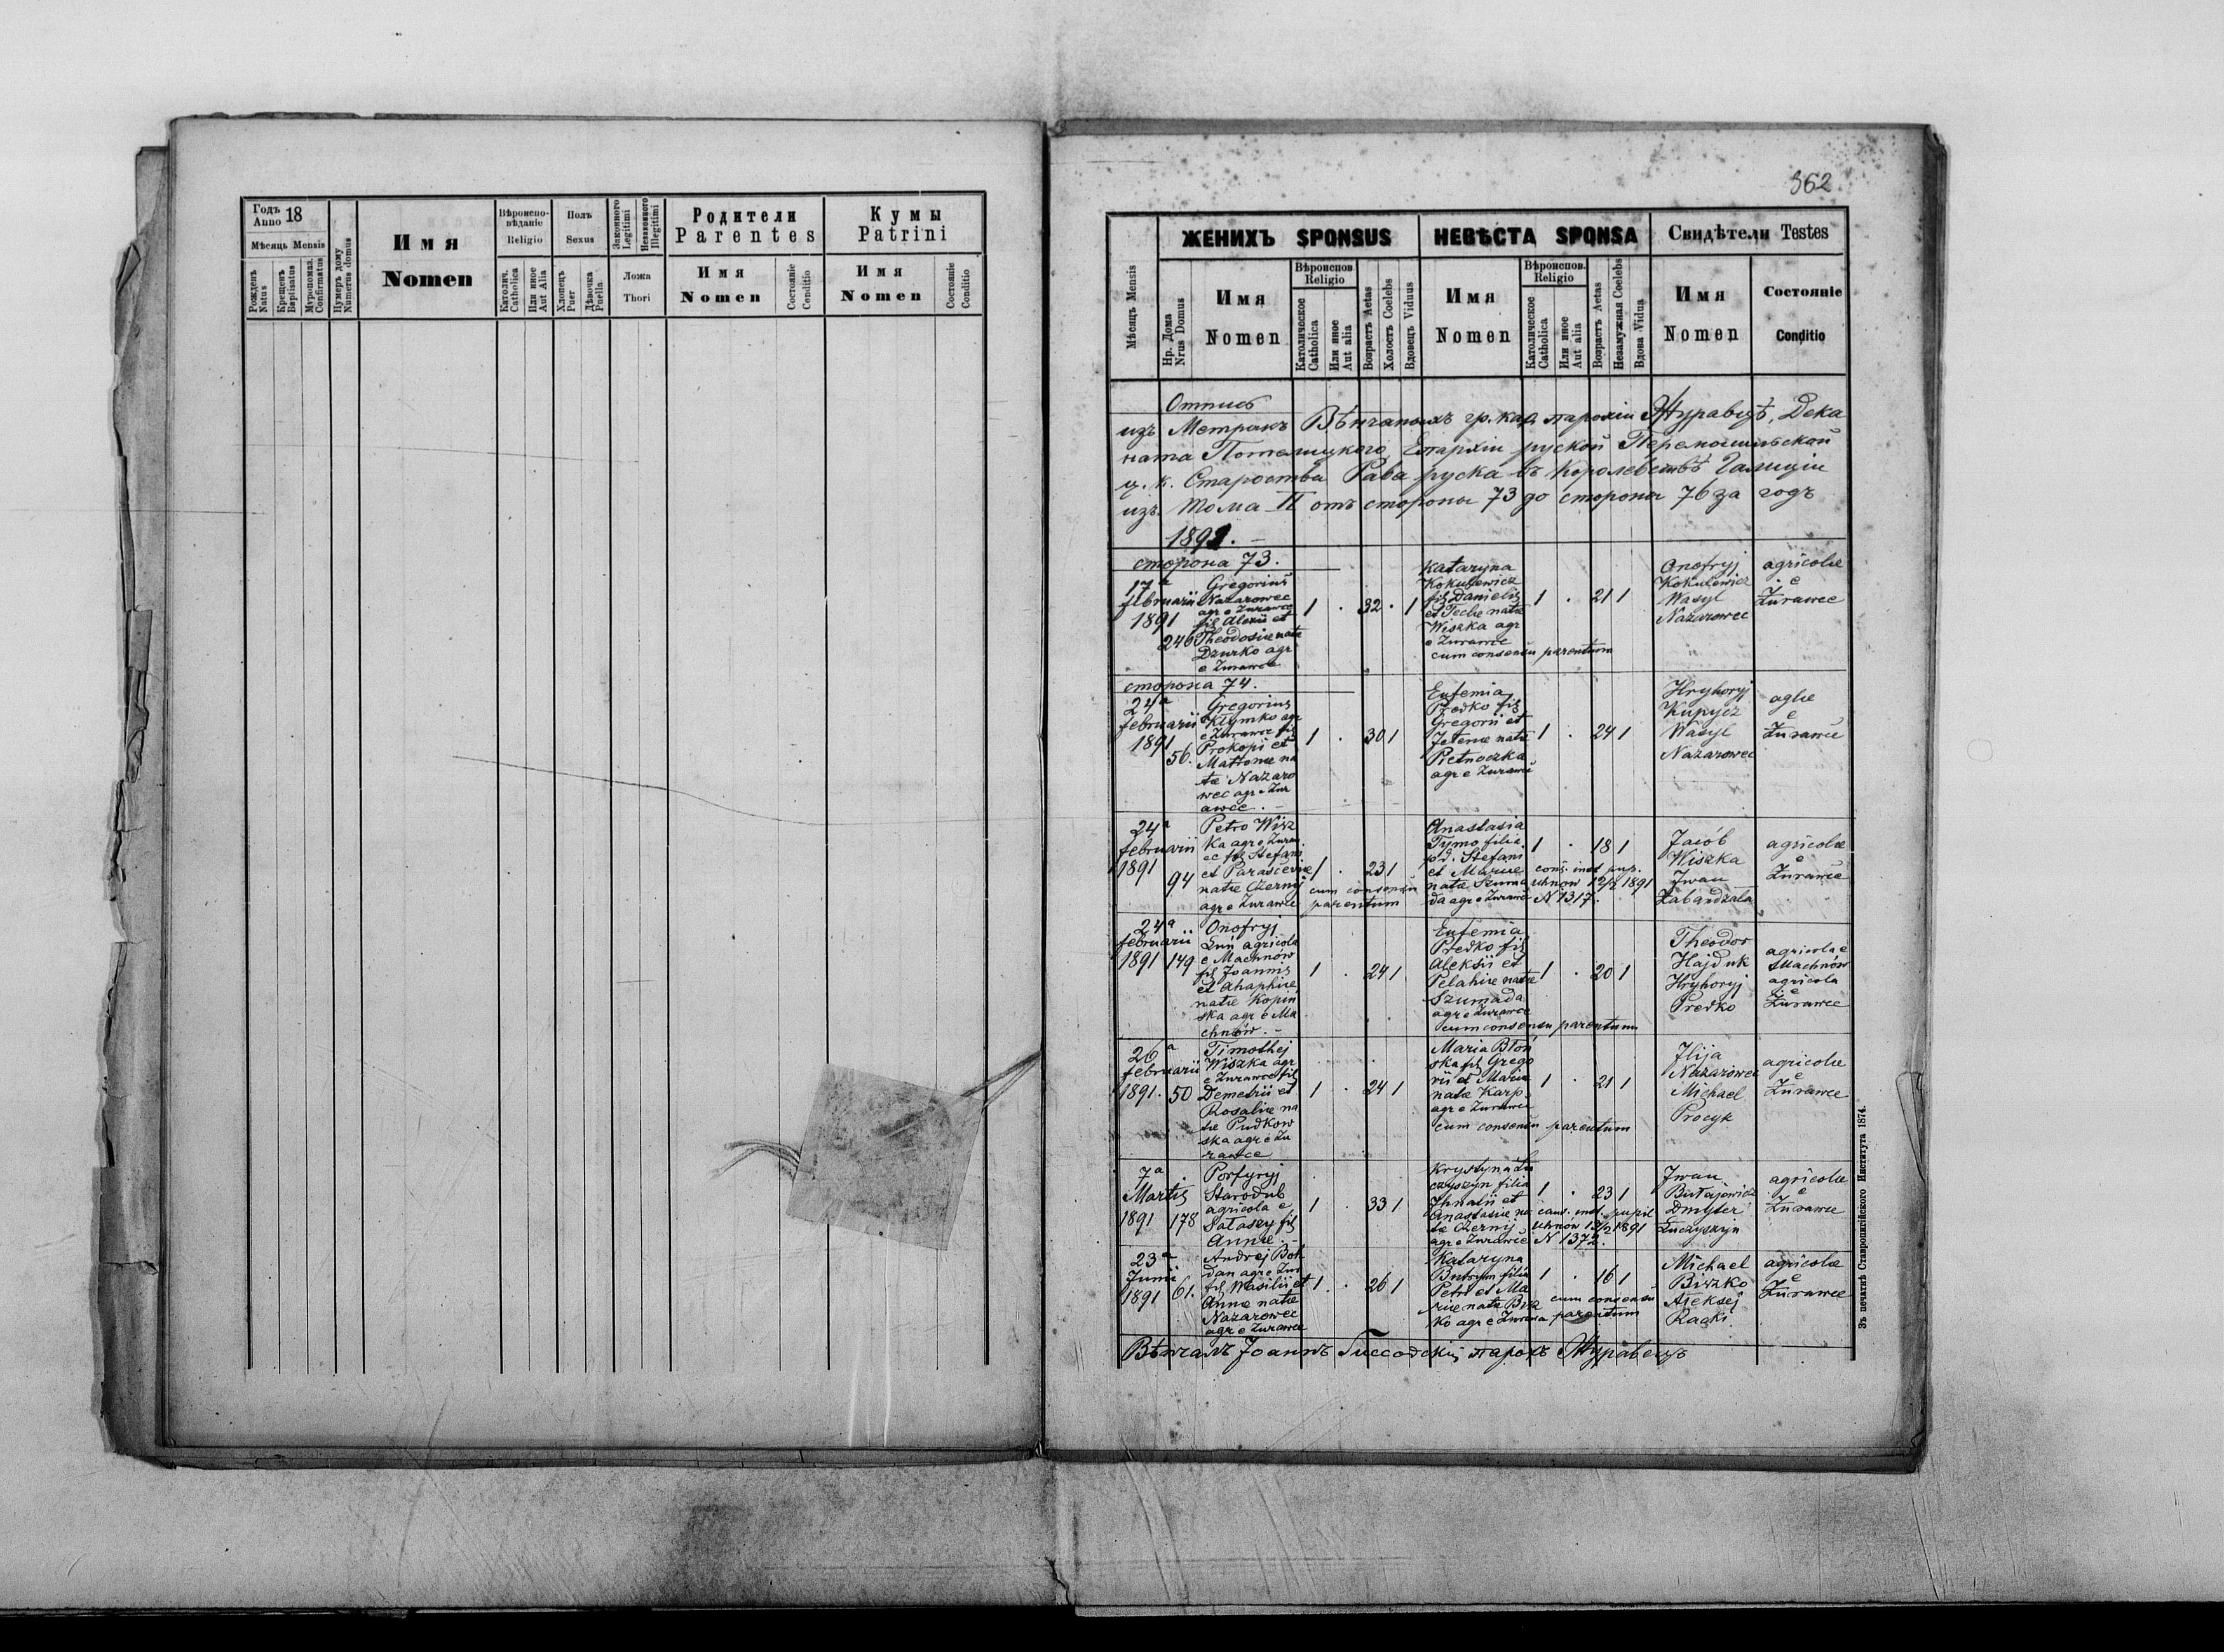 Годъ 18
Anno
Мѣсяць Mensis
Рожденъ Natus
Крещенъ Baptisatus
Мѵропомаз. Confirmatus
Нумеръ дому Numerus domus
Имя
Nomen
Вѣроисповѣданіе
Religio
Католич. Catholica
Или иное Aut Alia
Полъ
Sexus
Хлопецъ Puer
Дѣвочка Puella
Законного Legitimi
Незаконного Illegitimi
Ложа
Thori
Родители
Parentes
Имя
Nomen
Состояніе Conditio
Кумы
Patrini
Имя
Nomen
Состояніе Conditio
362
Мѣсяцъ Mensis
ЖЕНИХЪ SPONSUS
Нр. Дома Nrus Domus
Имя
Nomen
Вѣроиспов.
Religio
Католическое Catholica
Или иное Aut alia
Возрастъ Aetas
Холостъ Coelebs
Вдовецъ Viduus
НЕВѢСТА SPONSA
Имя
Nomen
Вѣроиспов.
Religio
Католическое Catholica
Или иное Aut alia
Возрастъ Aetas
Незамужная Coelebs
Вдова Vidua
Свидѣтели Testes
Имя
Nomen
Состояніе
Conditio
Отпись
изъ Метрикъ Вѣнчаныхъ гр. кат. парохіи Журавцѣ, Дека
ната Потелицкого, Епархіи руской Перемышльской
ц. к. Староства Рава руска въ Королевствѣ Галиціи
изъ Тома II отъ стороны 73 до стороны 76 за годъ
1891. –
сторона 73.
17 a
februarii
1891
246
Gregorius
Nazarowec
agr e Żurawce
fil Alexii et
Theodosiae natae
Dzurko agr
e Żurawce
1 . 32 . 1
Kataryna
Kokulewicz
fil Danielis
et Teclae natae
Wiszka agr
e Żurawce
cum consensu parentum
1 . 21 1
Onofryj
Kokulewicz
Wasyl
Nazarowec
agricolae
e
Żurawce
сторона 74.
24 a
februarii
1891
56.
Gregorius
Klymko agr
e Żurawce fil
Prokopi et
Matronae na
tae Nazaro
wec agr e Żur
awce. –
1 . 30 1
Eufemia
Predko fil
Gregorii et
natae
Pietnoczka
agr e Żurawce
1 . 24 1
Hryhoryj
Kupycz
Wasyl
Nazarowec
aglae
e
Żurawce
24 a
februarii
1891
94
Petro Wisz
ka agr e Żuraw
ec fil Stefani
et Parasceviae
natae Czernij
agr e Żurawce
1 . 23 1
cum consensu
parentum
Anastasia
Tymo filia
p. d. Stefani
et Mariae
natae Szuma
da agr e Żurawce
1 . 18 1
cons. inst pup.
Uhnow 12/2 1891
N 1317.
Jacób
Wiszka
Iwan
Zabandzala
agricolae
e
Żurawce
24 a
februarii
1891
149
Onofryj
agricola
e Machnów
fil Joannis
et Ahaphiae
natae Kopiń
ska agr e Ma
chnów. –
1 . 24 1
Eufemia
Predko fil
Aleksii et
Pelahiae natae
Szumada
agr e Żurawce
cum consensu parentum
1 . 20 1
Theodor
Hajduk
Hryhoryj
Predko
agricola e
Machnów
agricola
e
Żurawce
26 a
februarii
1891.
50
Timothej
Wiszka agr
e Żurawce fil
Demetrii et
Rosaliae na
tae Pudkow
ska agr e Żu
rawce
1 . 24 1
Maria Błoń
ska fil Grego
rii et Mariae
natae Karp
agr e Żurawce
cum consensu parentum
1 . 21 1
Ilija
Nazarowec
Michael
Procyk
agricolae
e
Żurawce
7 a
Martis
1891
178
Porfyryj
Starodub
agricola e
fil
Annae. –
1 . 33 1
Krystyna Łu
czyszyn filia
Ihnatii et
Anastasiae na
tae Czernij
agr e Żurawce
1 . 23 1
cons. inst. pupil
Uhnow 13/2 1891
N 1372.
Iwan
Dmyter
Łuczyszyn
agricolae
e
Żurawce
23 a
Junii
1891
61.
Andrej Boh
dan agr e Żur
fil Wasilii et
Annae natae
Nazarowec
agr e Żurawce
1 . 26 1
Kataryna
Butryn filia
Petri et Ma
riae natae Birz
ko agr e Żurawce
1 . 16 1
cum consensu
parentum
Michael
Birzko
Aleksej
Racki
agricolae
e
Żurawce
Вѣнчалъ Іоаннъ парохъ Журавецъ
Зъ печатнѣ Ставропигійского Института 1874.